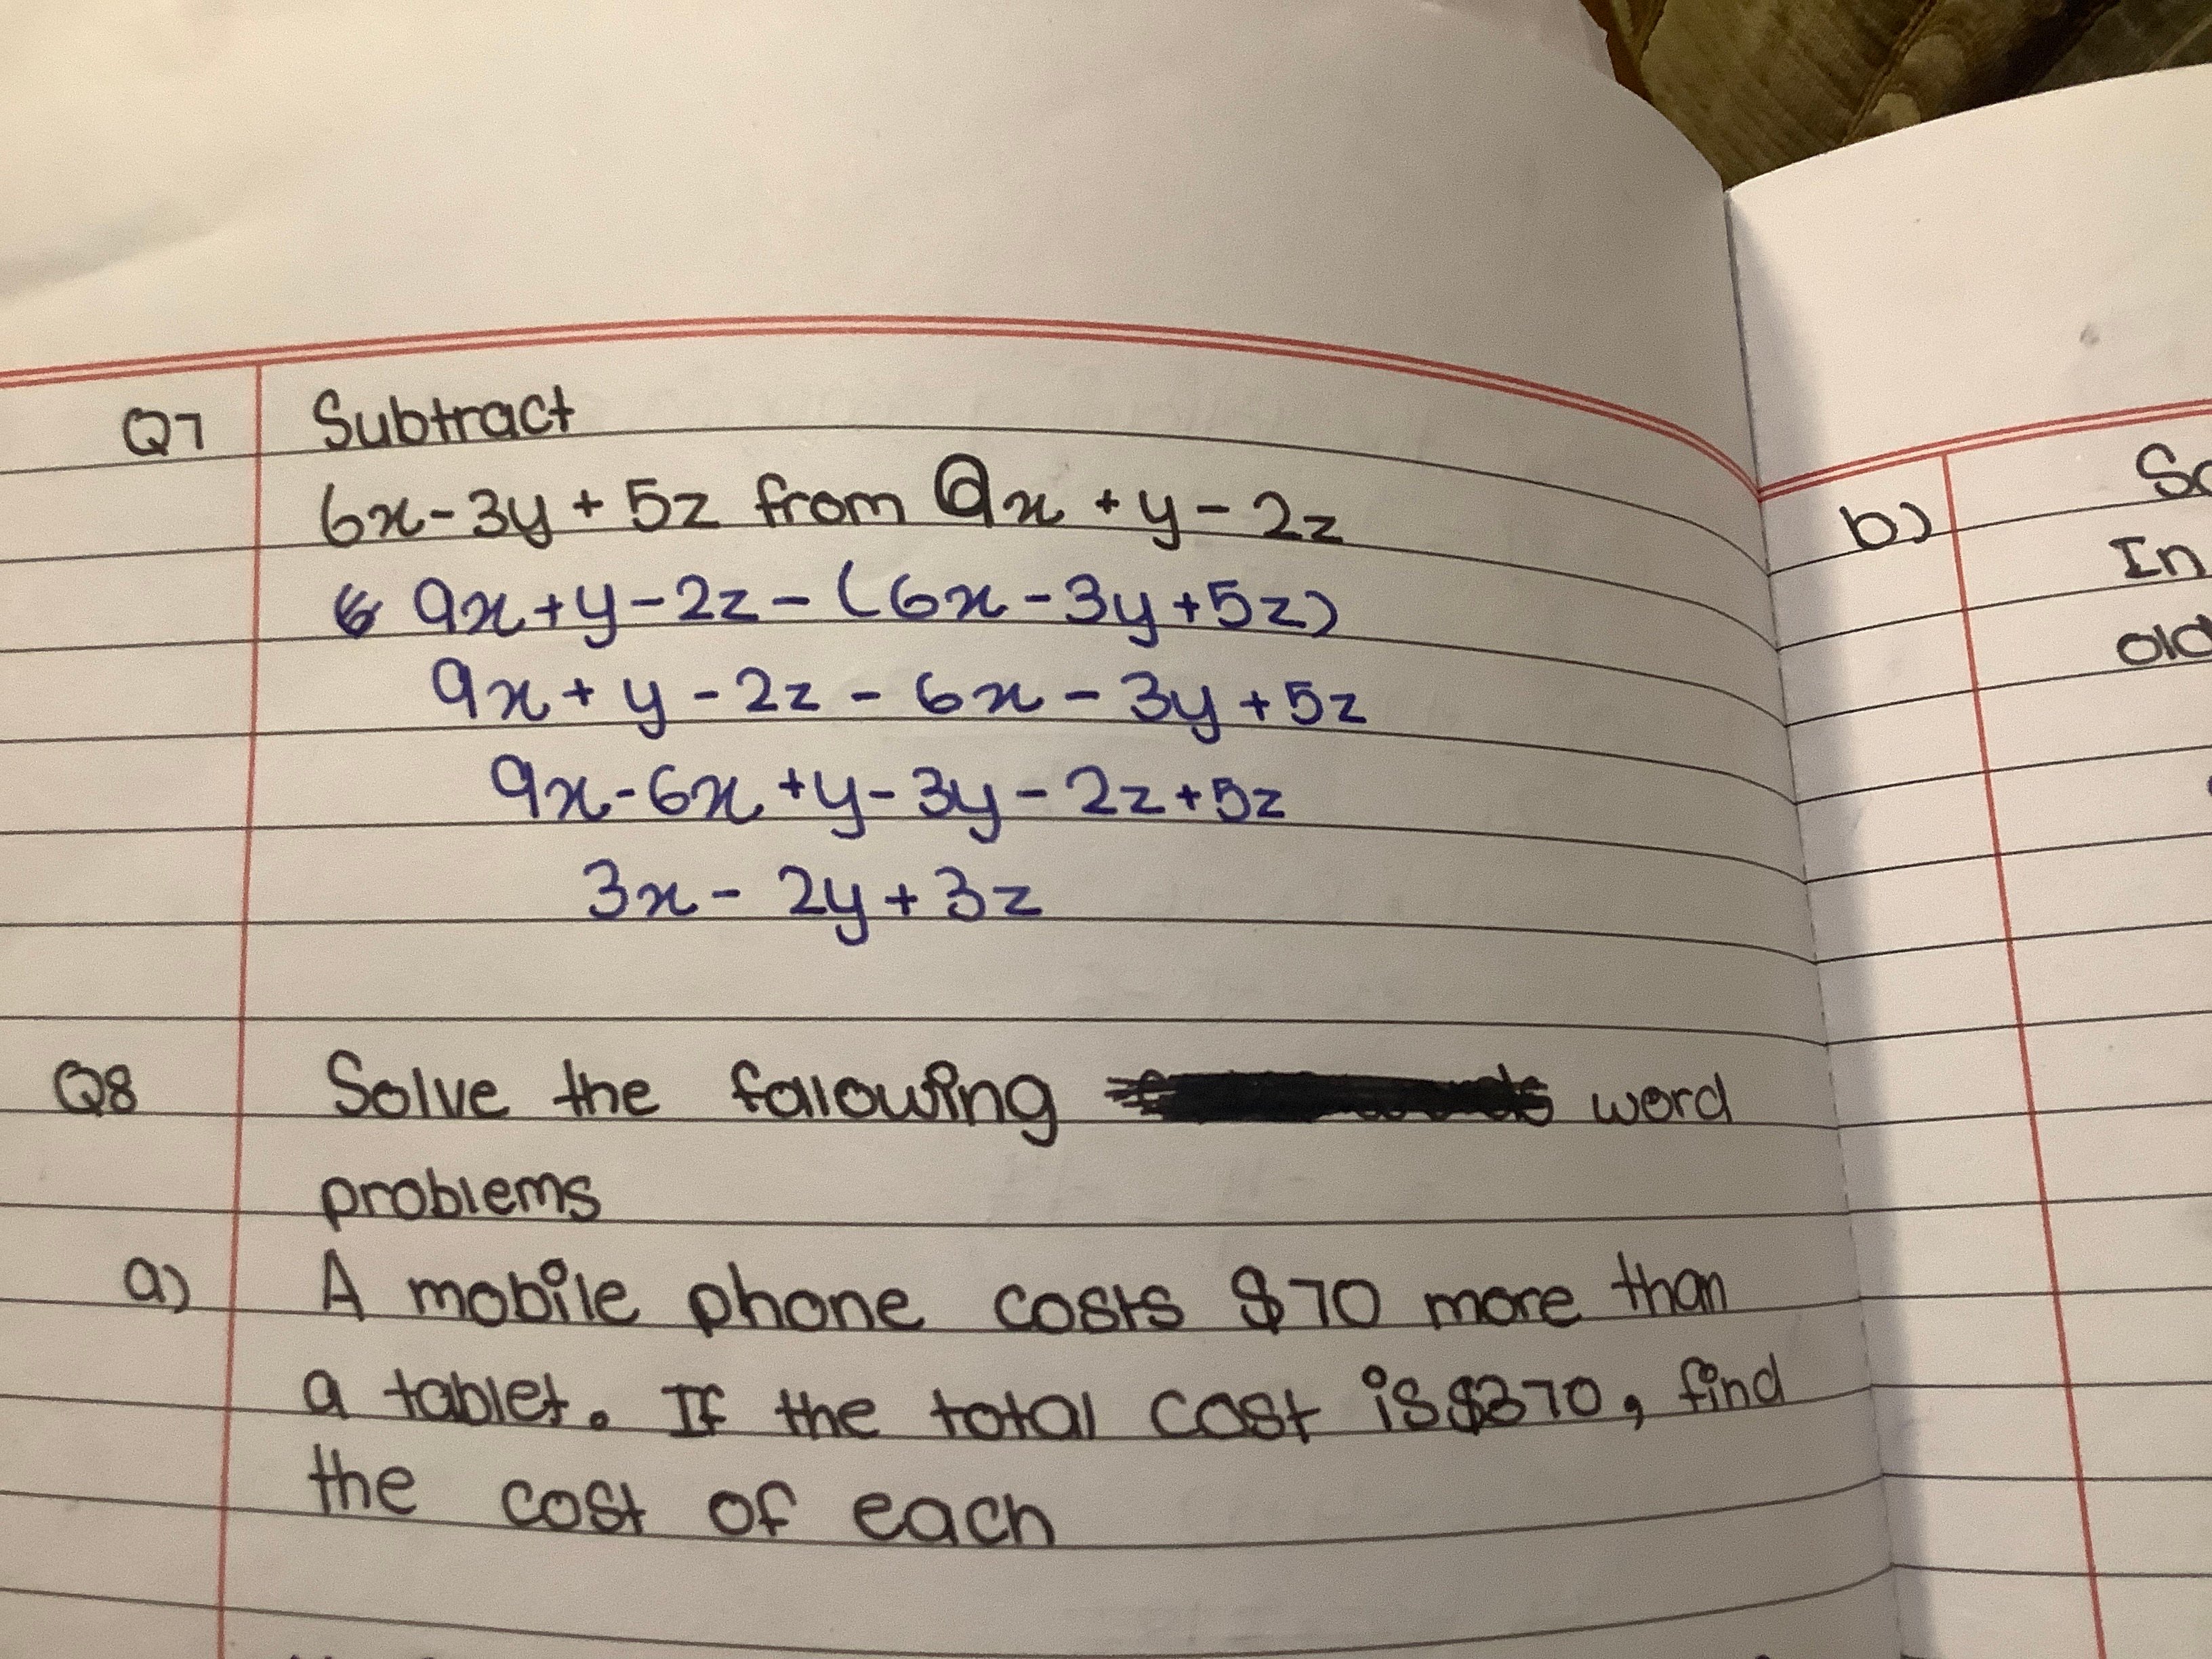 Q7 Subtract
6x - 3y + 5z from 9x + y - 2z
9x + y - 2z - (6x - 3y + 5z)
9x + y - 2z - 6x - 3y + 5z
9x - 6x + y - 3y - 2z + 5z
3x - 2y + 3z
Q8 Solve the falowing word
problems
a) A mobile phone costs $70 more than
a tablet. If the total cost is $370, find
the cost of each
b)
In
old